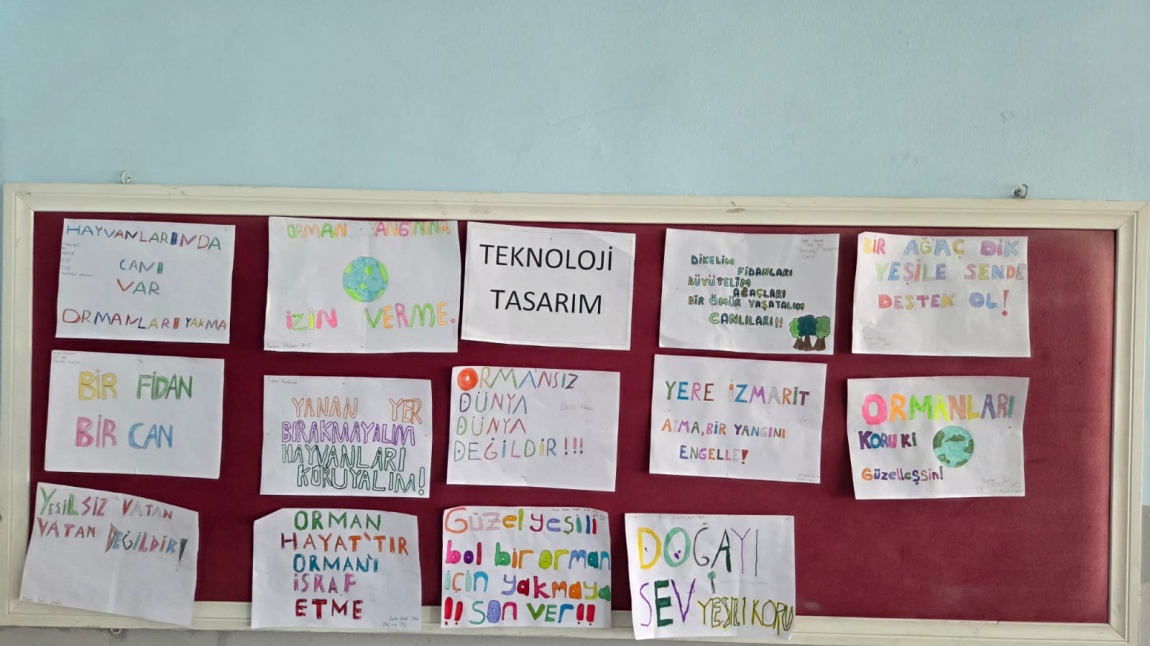 HAYVANLARINDA
CANI
VAR
ORMANLARI YAKMA
ORMAN YANGININA
İZİN VERME.
TEKNOLOJİ
TASARIM
DİKELİM
FİDANLARI
BÜYÜTELİM
AĞAÇLARI
BİR ÖMÜR YAŞATALIM
CANLILARI!!
BİR AĞAÇ DİK
YEŞİLE SENDE
DESTEK OL!
BİR FİDAN
BİR CAN
YANAN YER
BIRAKMAYALIM
HAYVANLARI
KORUYALIM!
ORMANSIZ
DÜNYA
DÜNYA
DEĞİLDİR!!!
YERE İZMARİT
ATMA, BİR YANGINI
ENGELLE!
ORMANLARI
KORU Kİ
Güzelleşsin!
YEŞİLSİZ VATAN
VATAN DEĞİLDİR!
ORMAN
HAYAT'TIR
ORMAN'I
İSRAF
ETME
Güzel yeşili
bol bir orman
için yakmaya
!! son ver!!
DOĞAYI
SEV YEŞİLİ KORU